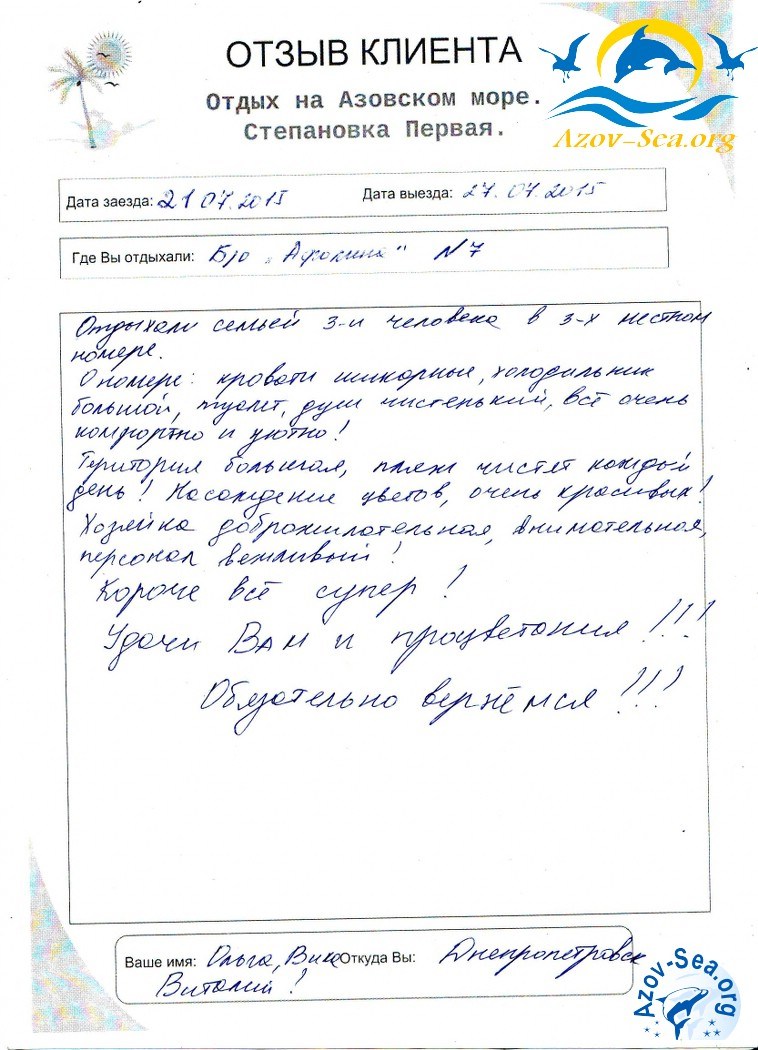 ОТЗЫВ КЛИЕНТА
Отдых на Азовском море.
Степановка Первая.
Azov-Sea.org
Дата заезда: 21 07.2015 Дата выезда: 27.07.2015
Где Вы отдыхали: Б/о "Афалина" N7
Отдыхали семьёй 3-и человека в 3-х местном
номере.
О номере: кровати шикарные, холодильник
большой, туалет, душ чистенький, всё очень
комфортно и уютно!
Територия большая, пляж чистят каждый
день! Насаждение цветов, очень красивых!
Хозяйка доброжилательная, внимательная,
персонал вежливый!
Короче всё супер!
Удачи Вам и процветания!!!
Обязательно вернёмся!!!
Ваше имя: Ольга, Вика Откуда Вы: Днепропетровск
Виталий!
Azov-Sea.org